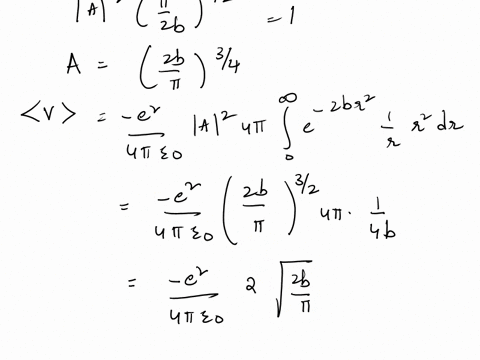 |A|² (π/2b)^3/2 = 1
A = (2b/π)^3/4
<v> = -e²/4πε0 |A|² 4π ∫₀^∞ e^-2br² 1/r r² dr
= -e²/4πε0 (2b/π)^3/2 4π · 1/4b
= -e²/4πε0 2 √(2b/π)